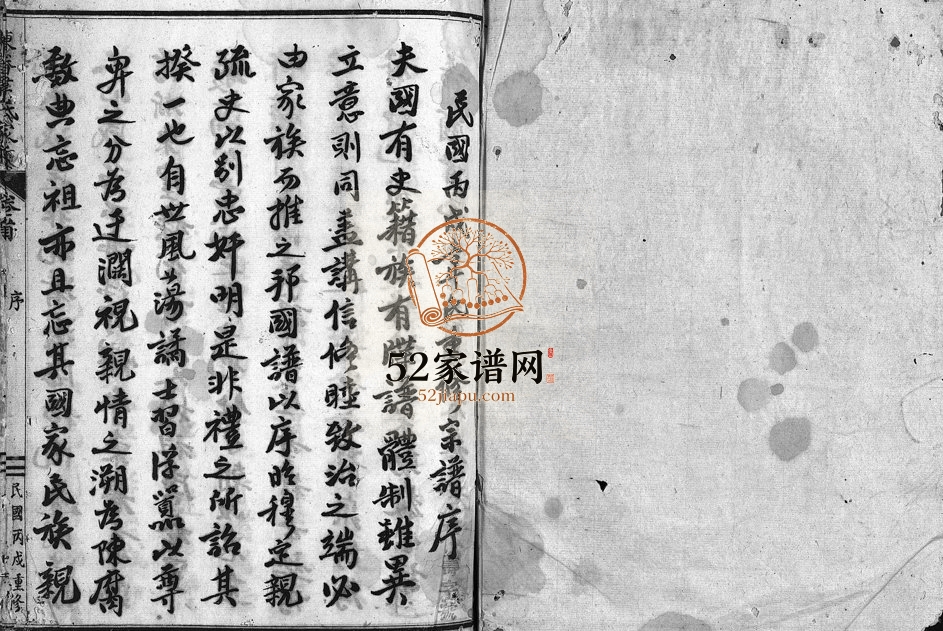 民國丙戌年 氏重修宗譜序
夫國有史籍族有牒譜體制雖異
立意則同蓋講信修睦致治之端必
由家族而推之邦國譜以序昭穆定親
疏史以別忠奸明是非禮之所詒其
揆一也自世風蕩譎士習浮囂以尊
卑之分為迂濶視親情之溯為陳腐
數典忘祖亦且忘其國家民族親
氏
序
民國丙戌重修
52家谱网
52jiapu.com